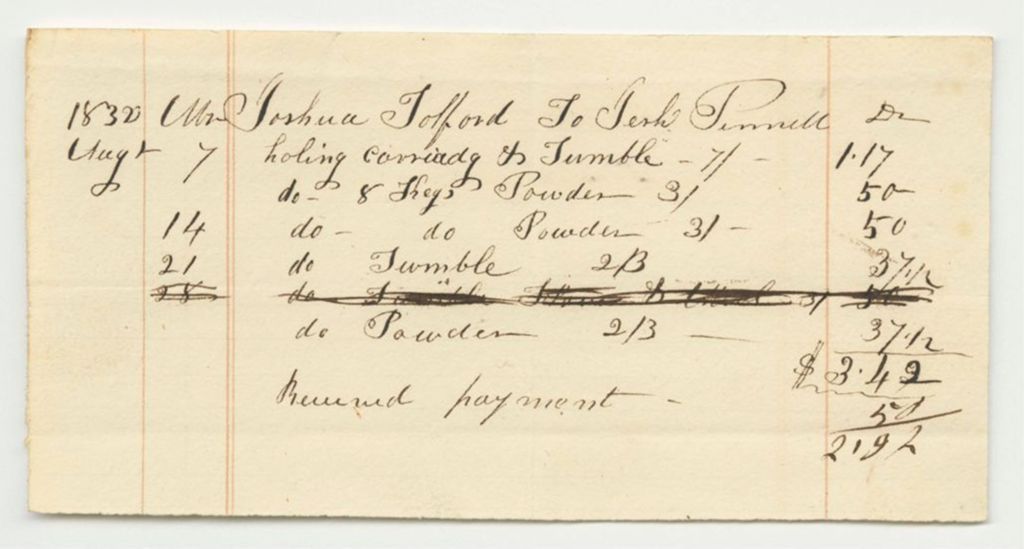 1832 Mr Joshua Tofford To Jerh Pennell Dr
Augt 7 holing carriadg & Tumble - 7/ - 1.17
do - 8 Kegs Powder 3/ 50
14 do - do Powder 3/ - 50
21 do Tumble 2/3 37.1/2
28 do & 3/ 50
do Powder 2/3 — 37.1/2
$ 3.42
50
2.92
Received payment -